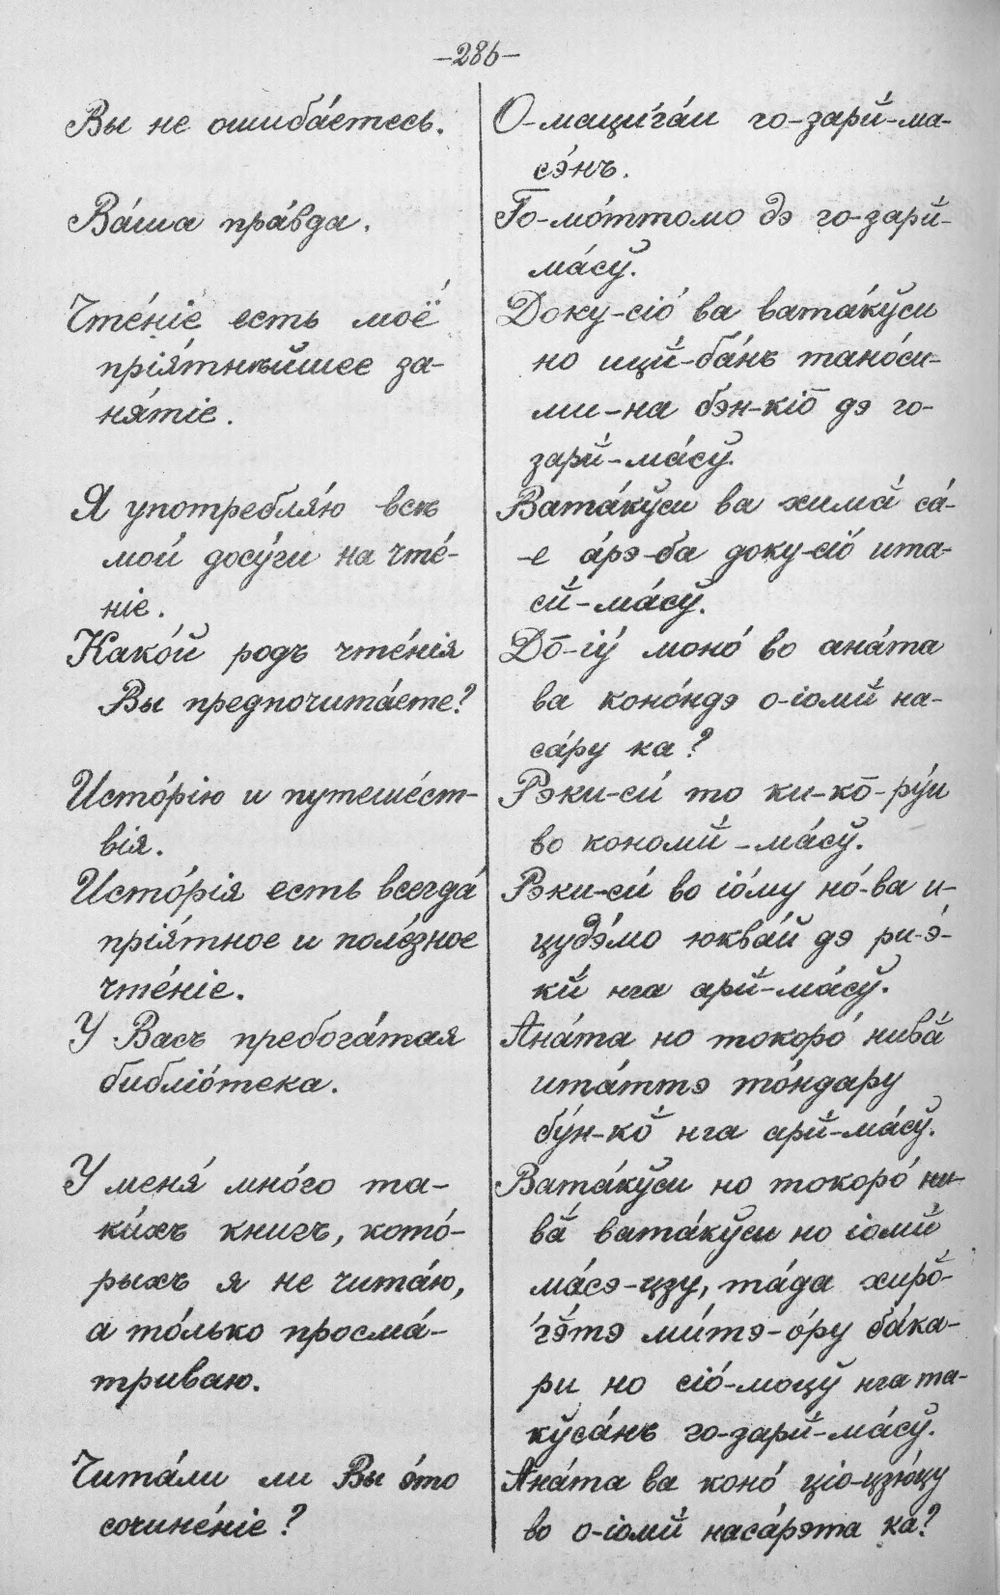 –286–
Вы не ошиба́етесь.
Ва́ша пра́вда.
Чте́ніе есть моё
прія́тнѣйшее за-
ня́тіе.
Я употребля́ю всѣ
мои́ досу́ги на чте́-
ніе.
Како́й родъ чте́нія
Вы предпочита́ете?
Исто́рію и путеше́ст-
вія.
Исто́рія есть всегда́
прія́тное и поле́зное
чте́ніе.
У Васъ пребога́тая
библіо́тека.
У меня́ мно́го та-
ки́хъ книгъ, кото́-
рыхъ я не чита́ю,
а то́лько просма́-
триваю.
Чита́ли ли Вы э́то
сочине́ніе?
О-мациѓа́и го-зарй́-ма-
сэ́нъ.
Го-мо́ттомо дэ го-зарй́-
ма́сў.
Доку-сіо́ ва вата́кўси
но ицй́-ба́нъ тано́си-
ми-на бэн-кіо̄ дэ го-
зарй́-ма́сў.
Вата́кўси ва хима́ са́-
-е а́рэ-ба доку-сіо́ ита-
сй́-ма́сў.
До̄-іу́ моно́ во ана́та
ва коно́ндэ о-іомй́ на-
са́ру ка?
Рэки-си́ то ки-ко̄-ру́и
во кономй́-ма́сў.
Рэки-си́ во іо́му но́-ва и-
цудэ́мо юква́й дэ ри-э́-
кй́ нга арй́-ма́сў.
Ана́та но токоро́ нива́
ита́ттэ то́ндару
бу́н-ко̄ нга арй́-ма́сў.
Вата́кўси но токоро́ ни-
ва́ вата́кўси но іомй́
ма́сэ-цзу, та́да хиро̆-
ѓэ́тэ ми́тэ-о́ру ба́ка-
ри но сіо́-моцў нга та-
кўса́нъ го-зарй́-ма́сў.
Ана́та ва коно́ ціо-цзю́цу
во о-іомй́ наса́рэта ка?